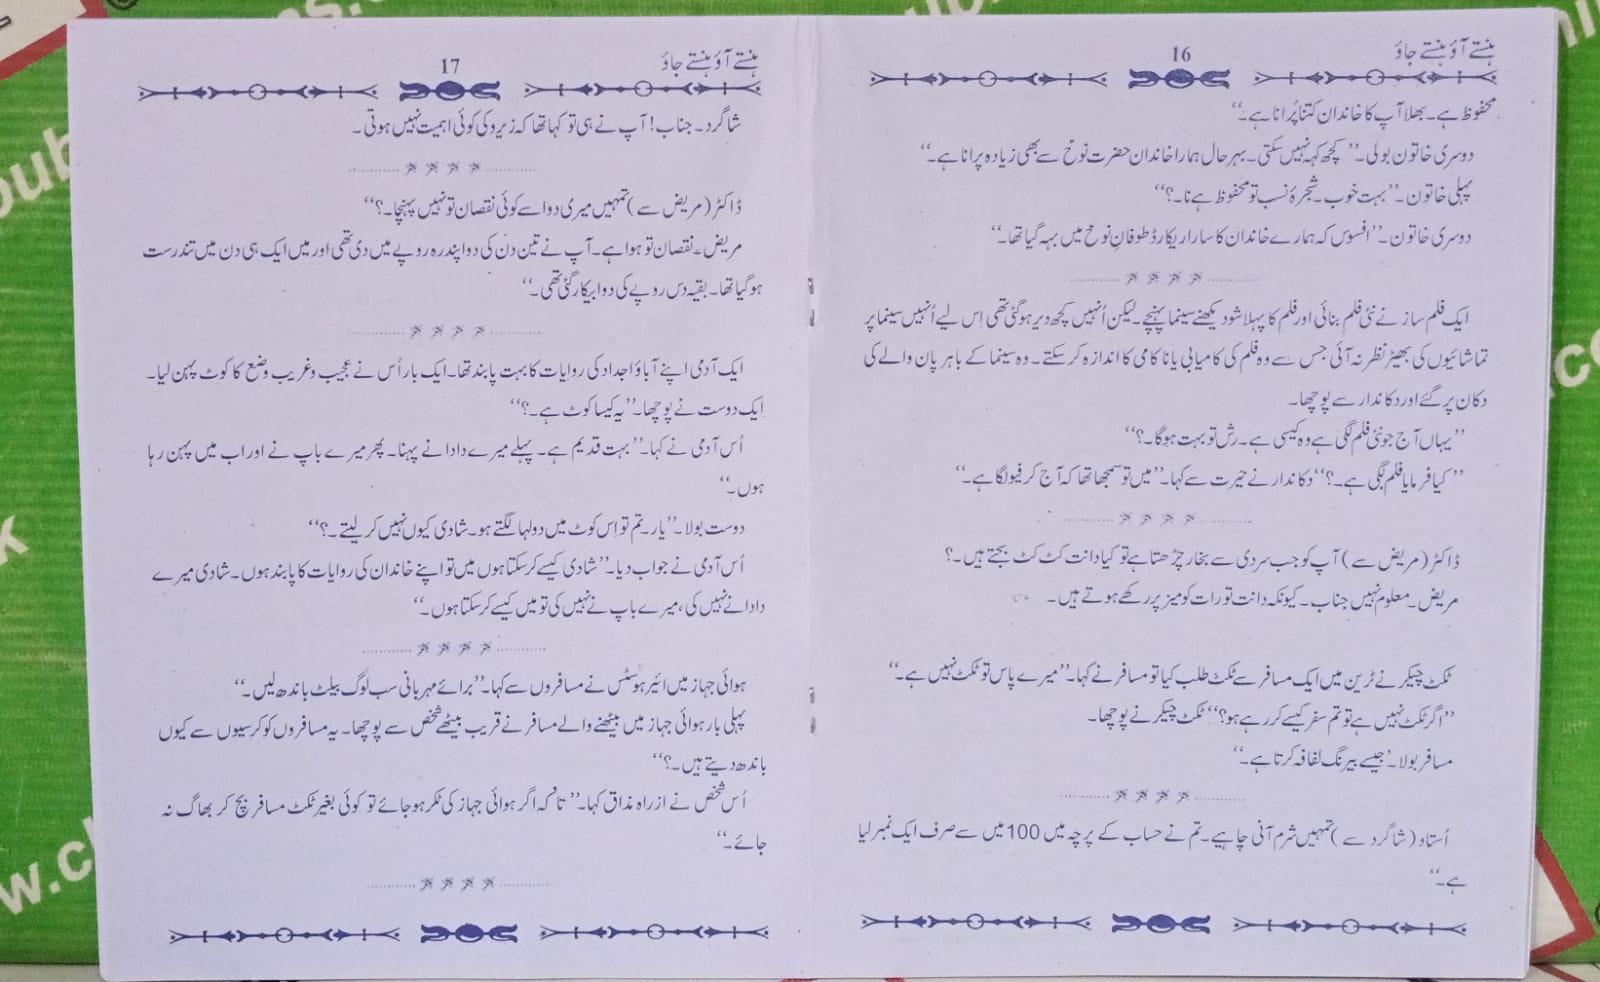 ہنستے آؤ ہنستے جاؤ
16
محفوظ ہے۔ بھلا آپ کا خاندان کتنا پُرانا ہے۔‘‘
دوسری خاتون بولی۔’’ کچھ کہہ نہیں سکتی۔ بہرحال ہمارا خاندان حضرت نوحؑ سے بھی زیادہ پرانا ہے۔‘‘
پہلی خاتون۔’’بہت خوب۔ شجرۂ نسب تو محفوظ ہے نا۔؟‘‘
دوسری خاتون۔’’افسوس کہ ہمارے خاندان کا سارا ریکارڈ طوفانِ نوحؑ میں بہہ گیا تھا۔‘‘
ایک فلم ساز نے نئی فلم بنائی اور فلم کا پہلا شو دیکھنے سینما پہنچے۔ لیکن اُنہیں کچھ دیر ہوگئی تھی اِس لیے اُنہیں سینما پر
تماشائیوں کی بھیڑ نظر نہ آئی جس سے وہ فلم کی کامیابی یا ناکامی کا اندازہ کرسکتے۔ وہ سینما کے باہر پان والے کی
دکان پر گئے اور دکاندار سے پوچھا۔
’’یہاں آج جو نئی فلم لگی ہے وہ کیسی ہے۔ رش تو بہت ہوگا۔؟‘‘
’’کیا فرمایا فلم لگی ہے۔؟‘‘ دکاندار نے حیرت سے کہا۔’’میں تو سمجھا تھا کہ آج کرفیو لگا ہے۔‘‘
ڈاکٹر (مریض سے) آپ کو جب سردی سے بخار چڑھتا ہے تو کیا دانت کٹ کٹ بجتے ہیں۔؟
مریض۔ معلوم نہیں جناب۔ کیونکہ دانت تو رات کو میز پر رکھے ہوتے ہیں۔
ٹکٹ چیکر نے ٹرین میں ایک مسافر سے ٹکٹ طلب کیا تو مسافر نے کہا۔’’میرے پاس تو ٹکٹ نہیں ہے۔‘‘
’’اگر ٹکٹ نہیں ہے تو تم سفر کیسے کر رہے ہو؟‘‘ ٹکٹ چیکر نے پوچھا۔
مسافر بولا۔’جیسے بیرنگ لفافہ کرتا ہے۔‘‘
اُستاد (شاگرد سے) تمہیں شرم آنی چاہیے۔ تم نے حساب کے پرچہ میں 100 میں سے صرف ایک نمبر لیا
ہے۔‘‘
ہنستے آؤ ہنستے جاؤ
17
شاگرد۔ جناب! آپ نے ہی تو کہا تھا کہ زیرو کی کوئی اہمیت نہیں ہوتی۔
ڈاکٹر (مریض سے) تمہیں میری دوا سے کوئی نقصان تو نہیں پہنچا۔؟‘‘
مریض۔ نقصان تو ہوا ہے۔ آپ نے تین دن کی دوا پندرہ روپے میں دی تھی اور میں ایک ہی دن میں تندرست
ہوگیا تھا۔ بقیہ دس روپے کی دوا بیکار گئی تھی۔‘‘
ایک آدمی اپنے آباؤ اجداد کی روایات کا بہت پابند تھا۔ ایک بار اُس نے عجیب و غریب وضع کا کوٹ پہن لیا۔
ایک دوست نے پوچھا۔’’یہ کیسا کوٹ ہے۔؟‘‘
اُس آدمی نے کہا۔’’بہت قدیم ہے۔ پہلے میرے دادا نے پہنا۔ پھر میرے باپ نے اور اب میں پہن رہا
ہوں۔‘‘
دوست بولا۔’’یار۔ تم تو اِس کوٹ میں دولہا لگتے ہو۔ شادی کیوں نہیں کرلیتے۔؟‘‘
اُس آدمی نے جواب دیا۔’’شادی کیسے کرسکتا ہوں میں تو اپنے خاندان کی روایات کا پابند ہوں۔ شادی میرے
دادا نے نہیں کی، میرے باپ نے نہیں کی تو میں کیسے کرسکتا ہوں۔‘‘
ہوائی جہاز میں ائیر ہوسٹس نے مسافروں سے کہا۔’’برائے مہربانی سب لوگ بیلٹ باندھ لیں۔‘‘
پہلی بار ہوائی جہاز میں بیٹھنے والے مسافر نے قریب بیٹھے شخص سے پوچھا۔ یہ مسافروں کو کرسیوں سے کیوں
باندھ دیتے ہیں۔؟‘‘
اُس شخص نے ازراہ مذاق کہا۔’’ تاکہ اگر ہوائی جہاز کی ٹکر ہوجائے تو کوئی بغیر ٹکٹ مسافر بچ کر بھاگ نہ
جائے۔‘‘